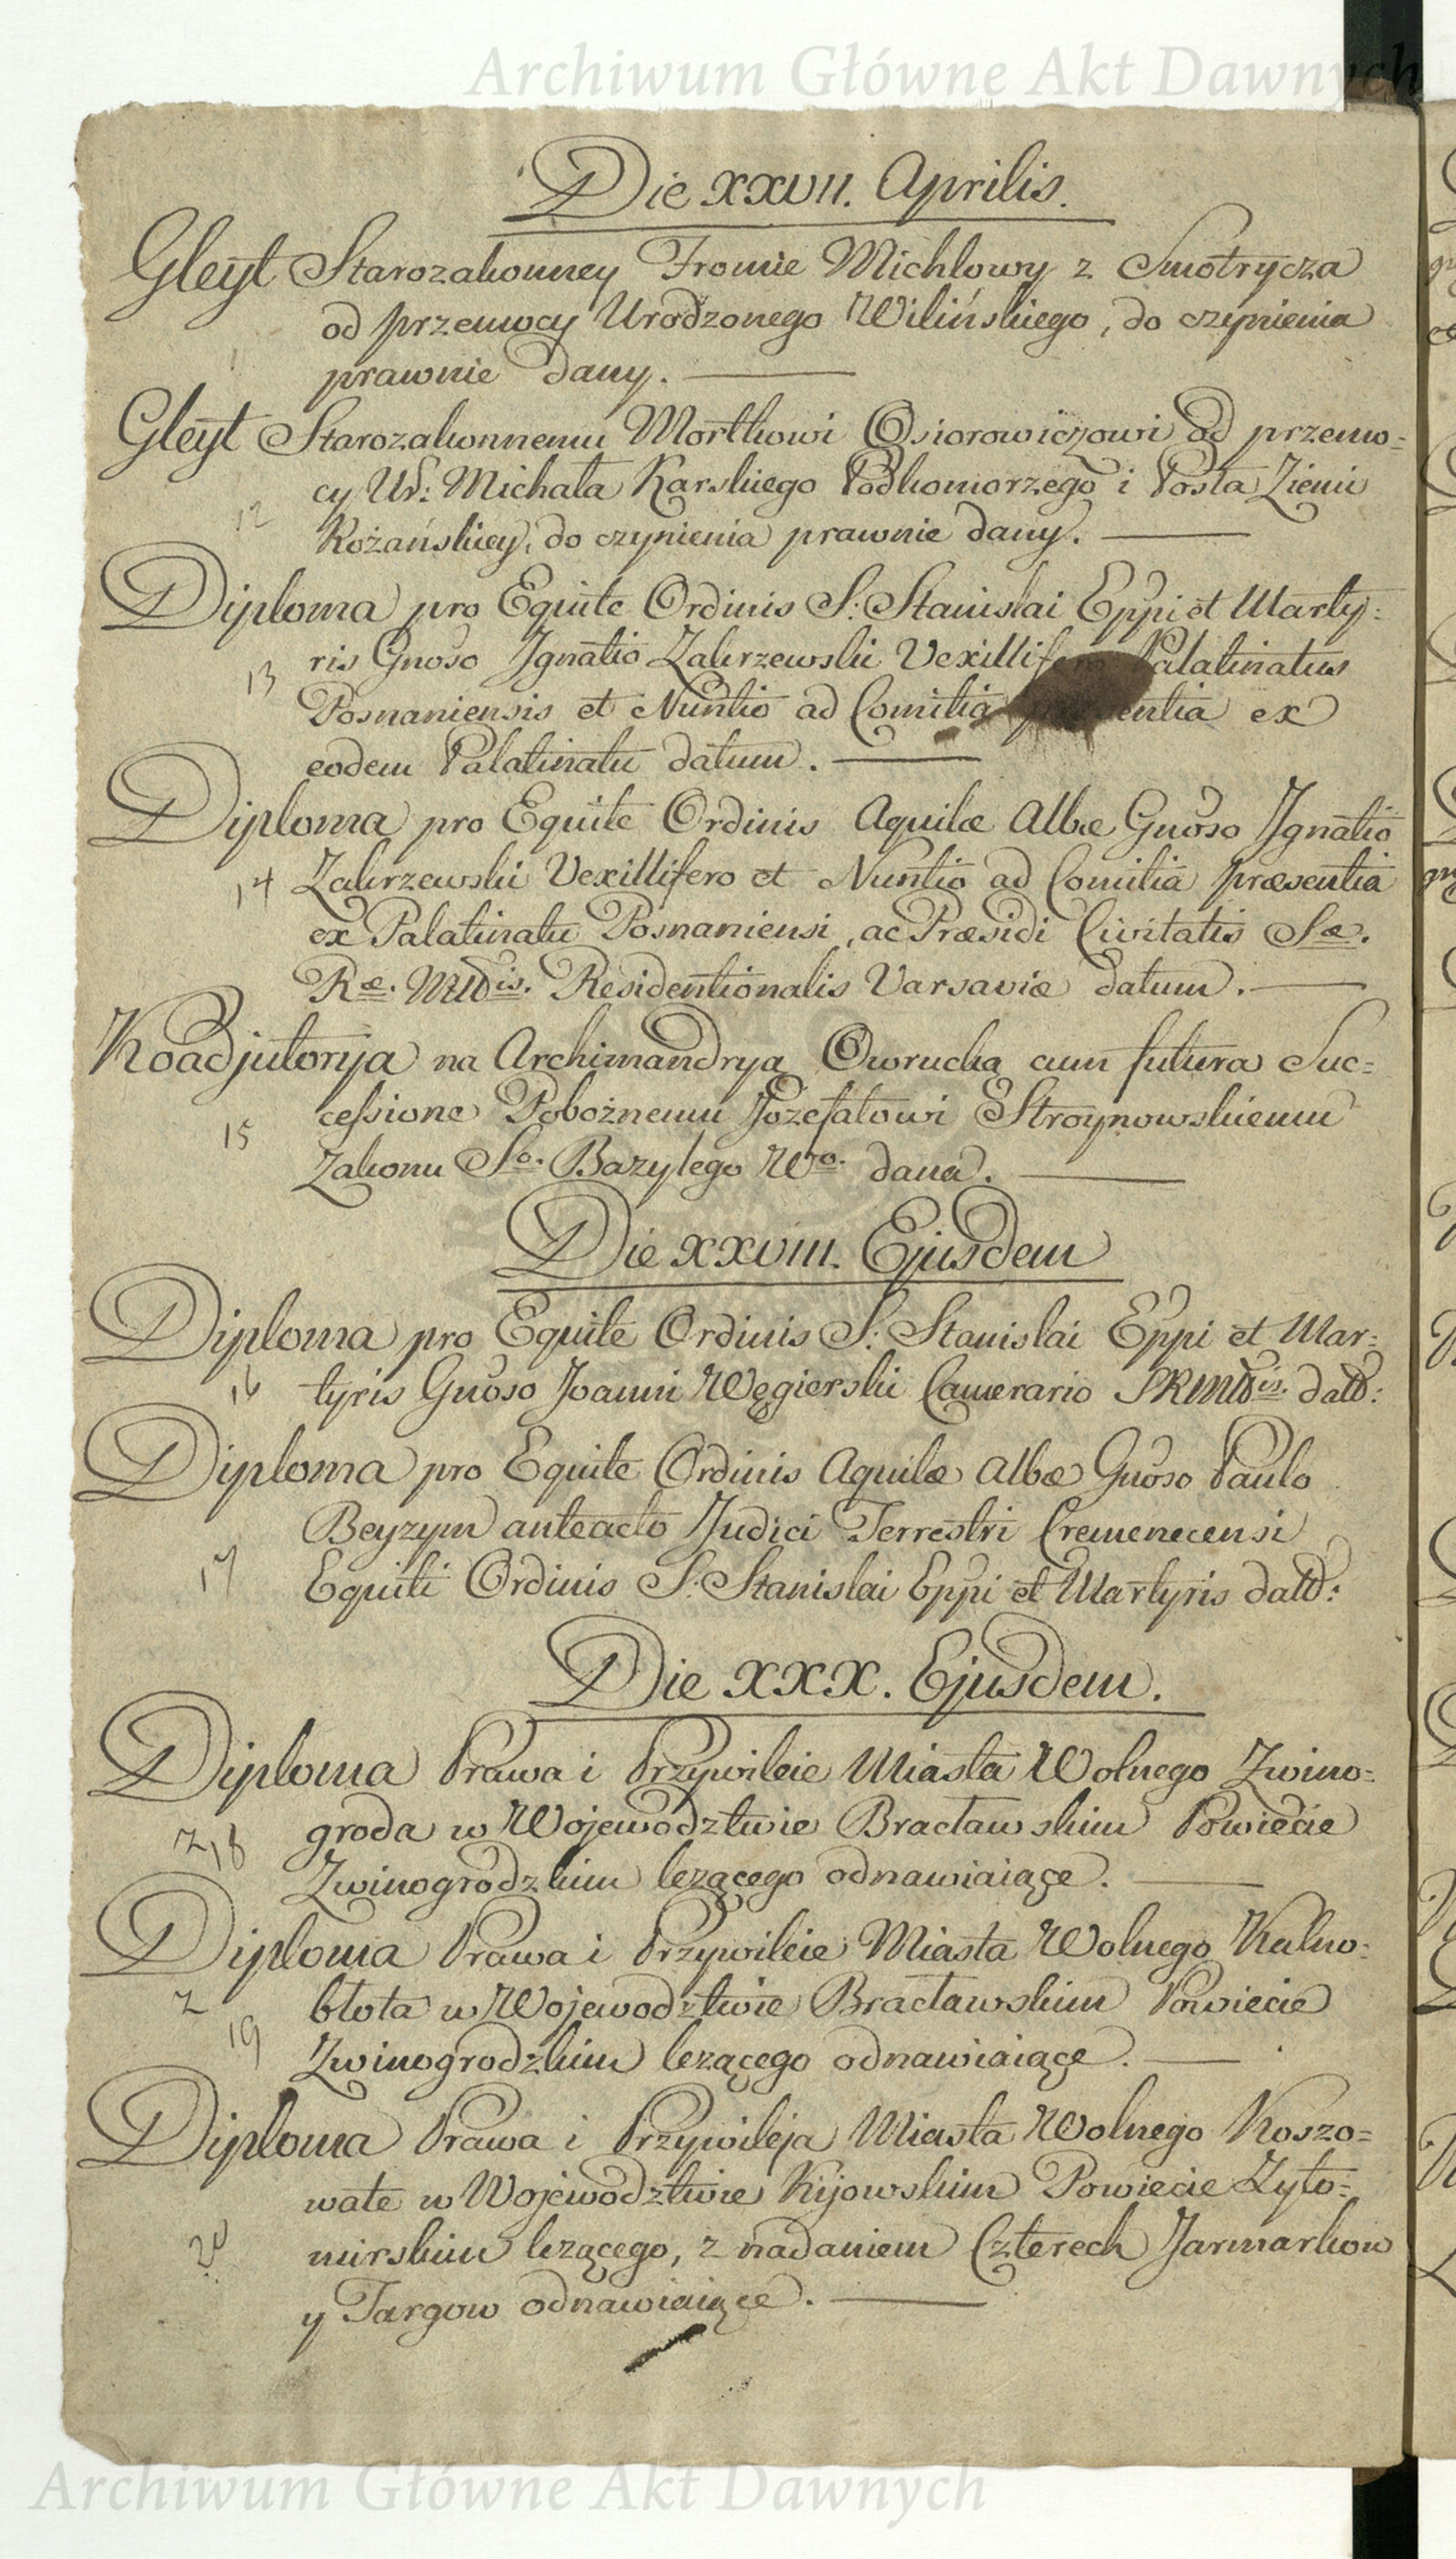 Archiwum Główne Akt Dawnych
Die XXVII. Aprilis.
Gleyt Starozakonney Fromie Michlowy z Smotrycza
od przemocy Urodzonego Wilińskiego, do czynienia
prawnie dany.
Gleyt Starozakonnemu Mortkowi Osiorowiczowi od przemo=
cy Ur: Michała Karskiego Podkomorzego i Posła Ziemi
12
Rożańskiey, do czynienia prawnie dany.
Diploma pro Equite Ordinis S: Stanislai Eppi et Marty=
ris Gnoso Jgnatio Zakrzewski Vexillifero Palatinatus
13
Posnaniensis et Nuntio ad Comitia ex
eodem Palatinatu datum.
Diploma pro Equite Ordinis Aquilæ Albæ Gnoso Jgnatio
14 Zakrzewski Vexillifero et Nuntio ad Comitia præsentia
ex Palatinatu Posnaniensi, ac Præsidi Civitatis Sæ.
Ræ. Mttis. Residentionalis Varsaviæ datum.
Koadjutorya na Archimandryą Owrucką cum futura Suc=
cessione Pobożnemu Jozefatowi Stroynowskiemu
15
Zakonu So. Bazylego Wo. dana.
Die XXVIII. Ejusdem
Diploma pro Equite Ordinis S: Stanislai Eppi et Mar=
16 tyris Gnoso Joanni Węgierski Camerario SRMttis. datt:
Diploma pro Equite Ordinis Aquilæ Albæ Gnoso Paulo
Beyzym anteacto Judici Terrestri Cremenecensi
17
Equiti Ordinis S. Stanislai Eppi et Martyris datt:
Die XXX. Ejusdem.
Diploma Prawa i Przywileie Miasta Wolnego Zwino=
groda w Wojewodztwie Bracławskim Powiecie
z 18
Zwinogrodzkim leżącego odnawiaiące.
Diploma Prawa i Przywileie Miasta Wolnego Kalno=
z błota w Wojewodztwie Bracławskim Powiecie
19
Zwinogrodzkim leżącego odnawiaiące.
Diploma Prawa i Przywileja Miasta Wolnego Koszo=
wate w Wojewodztwie Kijowskim Powiecie Zyto=
20 mirskim leżącego, z nadaniem Czterech Jarmarkow
y Targow odnawiaiące.
Archiwum Główne Akt Dawnych